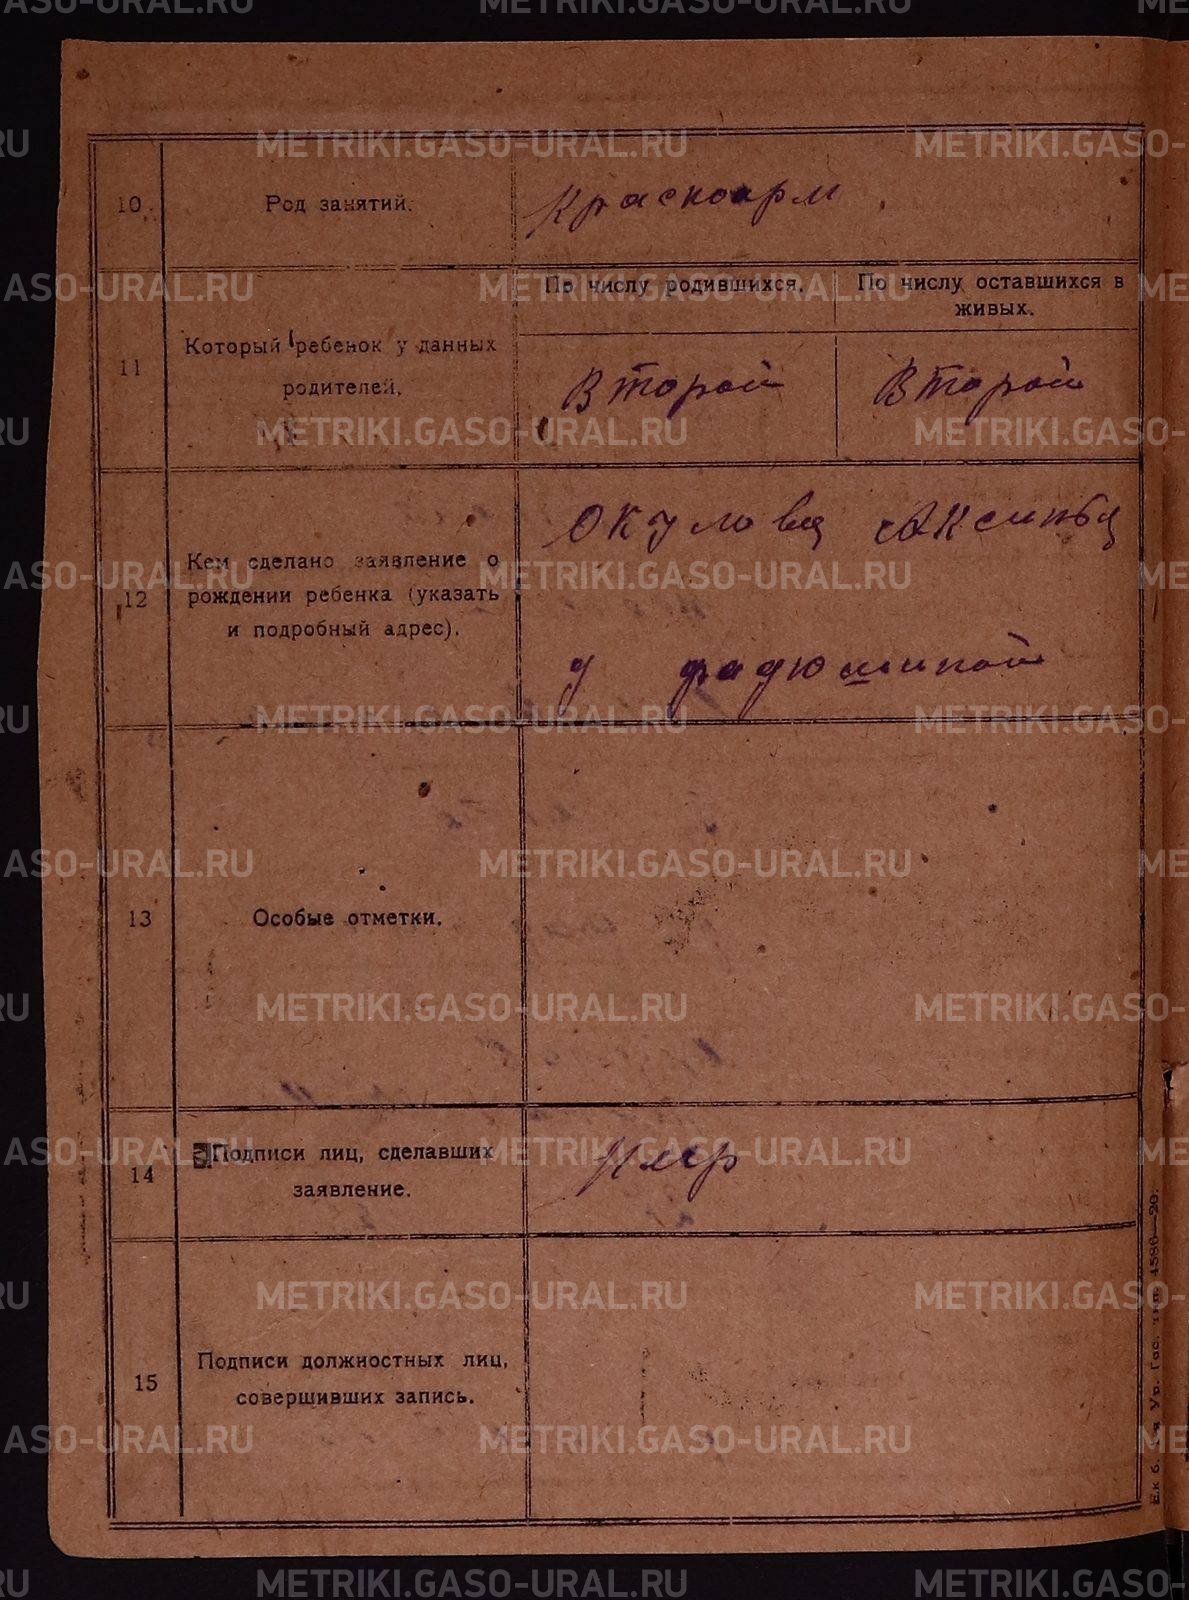 10.
Род занятий.
Красноарм
11
Который ребенок у данных
родителей.
По числу родившихся.
По числу оставшихся в
живых.
Второй
Второй
12
Кем сделано заявление о
рождении ребенка (указать
и подробный адрес).
Окулова Аксинья
д
13
Особые отметки.
14
Подписи лиц, сделавших
заявление.
15
Подписи должностных лиц,
совершивших запись.
METRIKI.GASO-URAL.RU